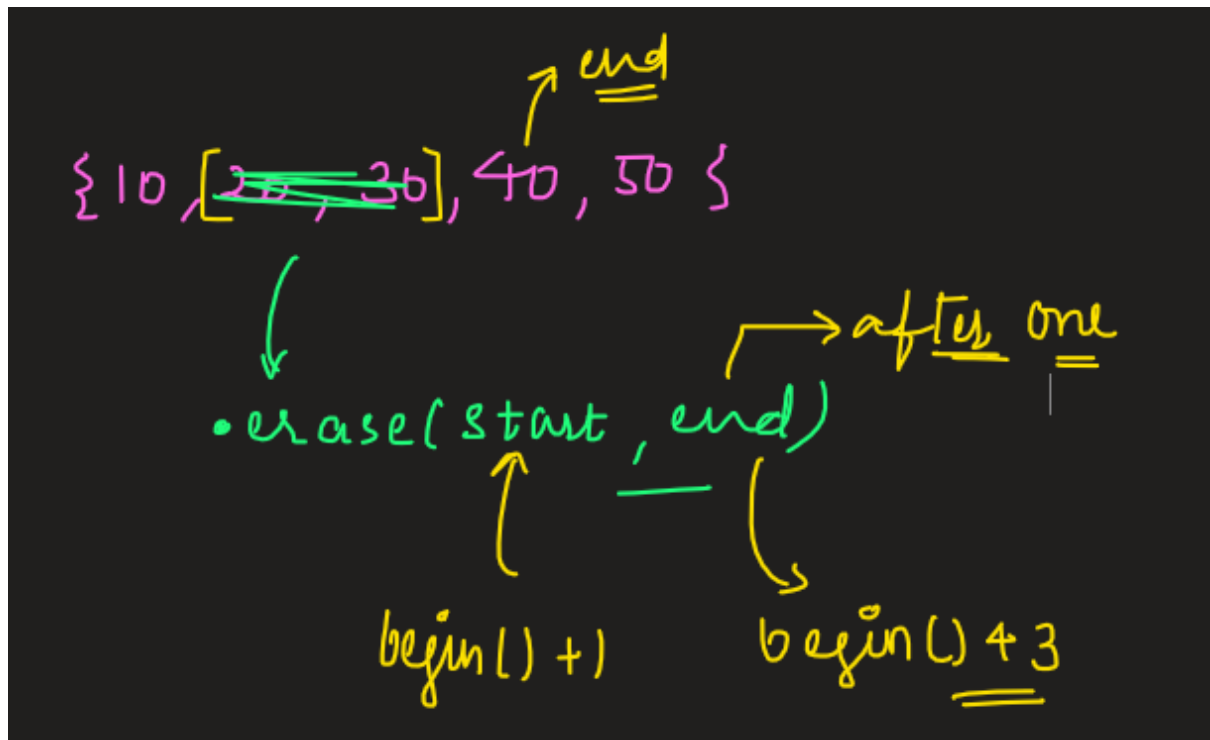 end
{10, [20, 30], 40, 50 {
after one
.erase(start, end)
begin()+1 begin()+3